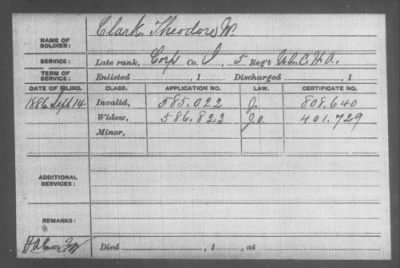 NAME OF SOLDIER: Clark, Theodore W.
SERVICE: Late rank, Corp Co. I, 5 Reg't U.S.C.H.A.
TERM OF SERVICE: Enlisted , 1 Discharged , 1
DATE OF FILING. CLASS. APPLICATION NO. LAW. CERTIFICATE NO.
1886 Sept 14 Invalid, 585.022 J. 808.640
Widow, 586.823 J.o. 401.729
Minor,
ADDITIONAL SERVICES:
REMARKS:
Died , 1 , at